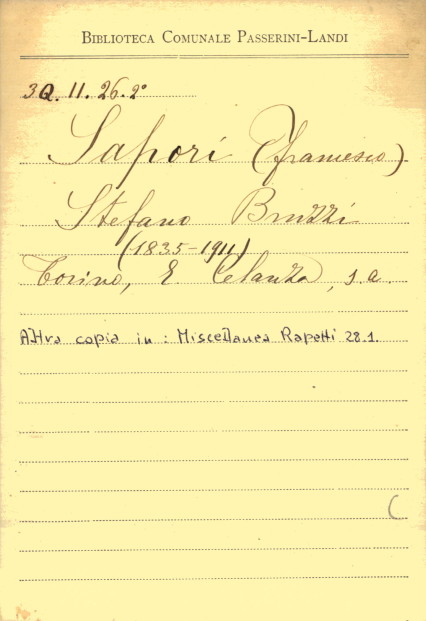 BIBLIOTECA COMUNALE PASSERINI-LANDI
3Q. 11. 26. 2°
Sapori (Francesco)
Stefano Bruzzi
(1835-1911)
Torino, E. Celanza, s.a.
Altra copia in : Miscellanea Rapetti 28.1.